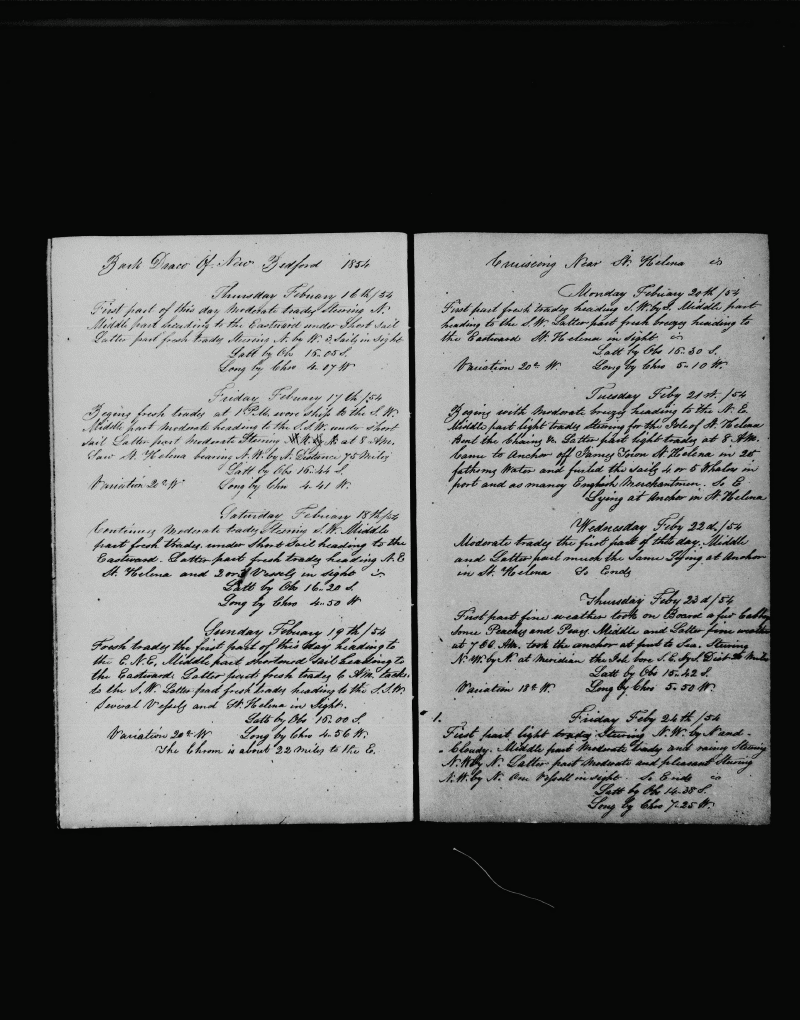 Bark Draco Of New Bedford 1854
Thursday Febuary 16th/54
First part of this day Moderate trades Stering N.
Middle part heading to the Eastward under Short Sail
Latter part fresh trades Stering N. by W. 3 Sails in sight
Latt by Obs 15-05 S.
Long by Chro 4-07 W
Friday Febuary 17th/54
Begins fresh trades at 1 P.M. wore ship to the S.W.
Middle part Moderate heading to the S.S.W. under Short
Sail Latter part Moderate Stering at 8 AM.
Saw St. Helena bearing N.W. by N. Distance 75 Miles
Latt by Obs 16-44 S.
Variation 20° W Long by Chro 4-41 W.
Saturday Febuary 18th/54
Continues Moderate trades Stering S.W. Middle
part fresh trades under Short Sail heading to the
Eastward. Latter part fresh trades heading N.E
St. Helena and 2 or 3 Vessels in sight
Latt by Obs 16-20 S.
Long by Chro 4-50 W
Sunday Febuary 19th/54
Fresh trades the first part of this day heading to
the E.N.E. Middle part Shortened Sail heading to
the Eastward. Latter part fresh trades 6 AM. tack
to the S.W. Latter part fresh trades heading to the S.S.W.
Several Vessels and St. Helena in Sight.
Latt by Obs 16-00 S.
Variation 20° W Long by Chro 4-56 W.
The Chrom is about 22 miles to the E.
Cruiseing Near St. Helena
Monday Febuary 20th/54
First part fresh trades heading S.W. by S. Middle part
heading to the S.W. Latter part fresh breezes heading to
the Eastward St. Helena in sight
Latt by Obs 16-30 S.
Variation 20° W. Long by Chro 5-10 W.
Tuesday Feby 21st/54
Begins with Moderate breezes heading to the N.E.
Middle part light trades stering for the Isle of St. Helena
Bent the Chains &c Latter part light trades at 8 AM.
Came to Anchor off James Town St Helena in 25
fathoms Water and furled the sails 4 or 5 Whalers in
port and as maney English Merchantmen. So E
Lying at Anchor in St. Helena
Wednesday Feby 22d/54
Moderate trades the first part of this day. Middle
and Latter part much the Same Lying at Anchor
in St. Helena So Ends
Thursday Feby 23d/54
First part fine weather took on Board a few
Some Peaches and Pears. Middle and Latter fine weather
at AM. took the anchor at put to Sea. Stering
N.W. by N. at Meridian the Isl. bore S.E. by S. Dist Miles
Latt by Obs 15-42 S.
Variation 18° W. Long by Chro 5-50 W.
Friday Feby 24th/54
First part light trades Stering N.W. by N and
Cloudy. Middle part Moderate trades and rainy Stering
N.W by N. Latter part Moderate and pleasant Stering
N.W. by N. One Vessell in sight So Ends
Latt by Obs 14-38 S.
Long by Chro 7-25 W.